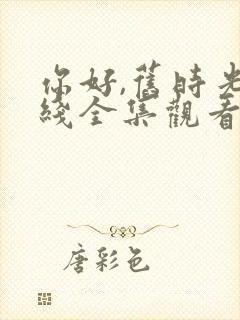 你好,舊時光
綫全集觀看
唐彩色